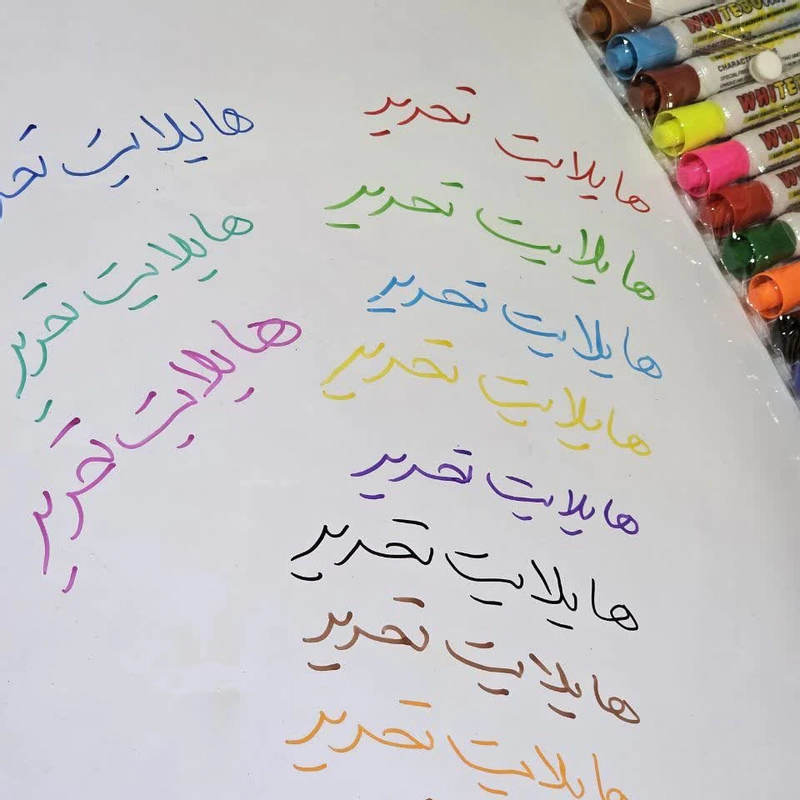 هایلایت تحریر
هایلایت تحریر
هایلایت تحریر
هایلایت تحریر
هایلایت تحریر
هایلایت تحریر
هایلایت تحریر
هایلایت تحریر
هایلایت
هایلایت تحریر
هایلایت تحریر
WHITEBOARD
CHARACT
WHITEB
WHIT
WH